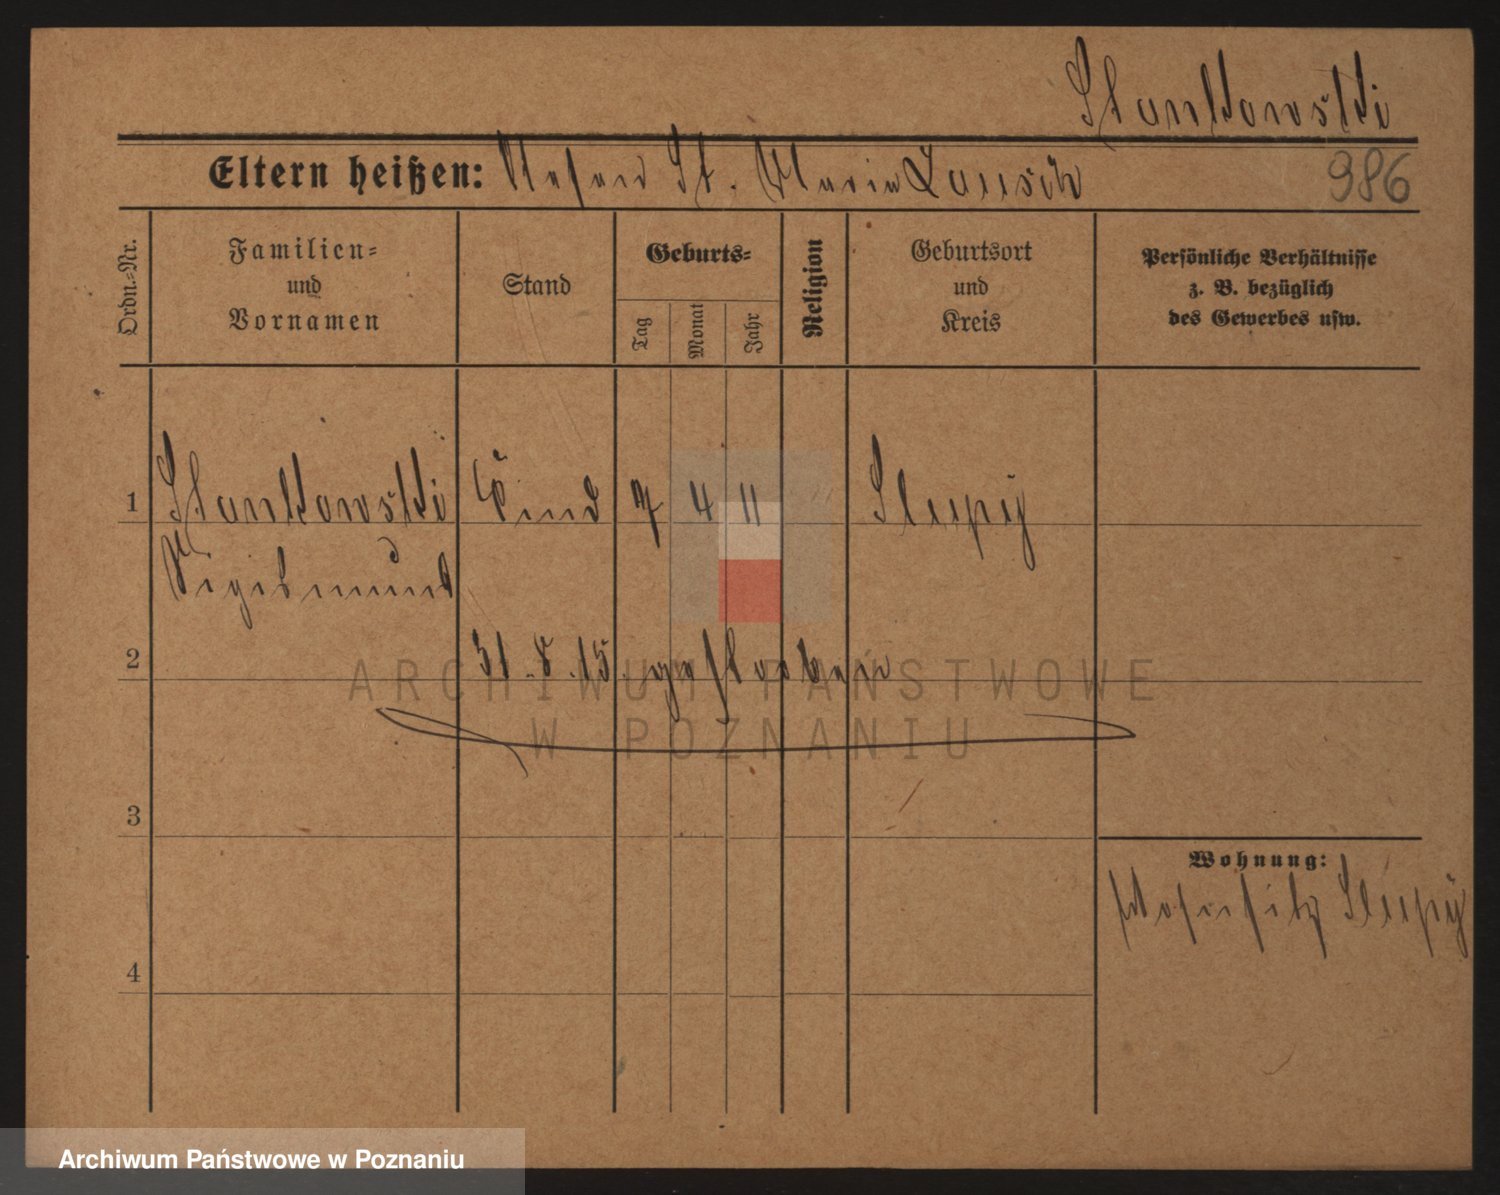 Stankowski
Eltern heißen: St. Maria
986
Ordn.-Nr.
Familien-
und
Vornamen
Stand
Geburts-
Tag
Monat
Jahr
Religion
Geburtsort
und
Kreis
Persönliche Verhältnisse
z. B. bezüglich
des Gewerbes usw.
1 Stankowski Kind 7 4 11 Slupy
Sigismund
2 31.8.15 gestorben
ARCHIWUM PAŃSTWOWE
W POZNANIU
3
Wohnung:
Slupy
4
Archiwum Państwowe w Poznaniu